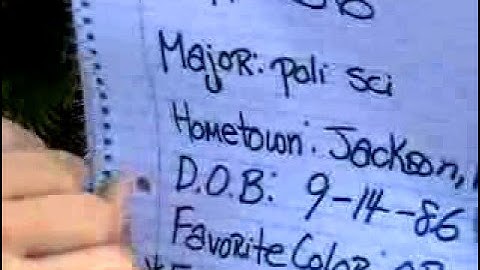 Major: poli sci
Hometown: Jackson,
D.O.B: 9-14-86
Favorite Color: